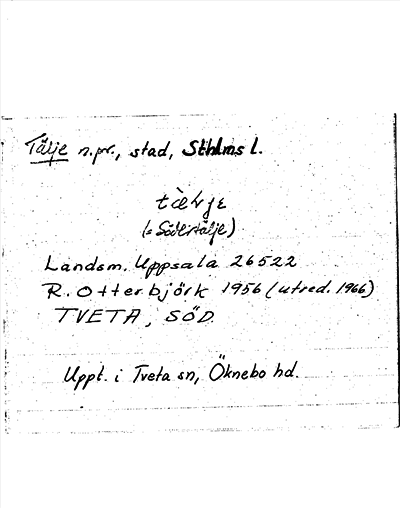 Tälje n.pr., stad, Sthlms l.
tæ̀lje
(= Södertälje)
Landsm. Uppsala 26522
R. Otterbjörk 1956 (utred. 1966)
TVETA, SÖD.
Uppt. i Tveta sn, Öknebo hd.